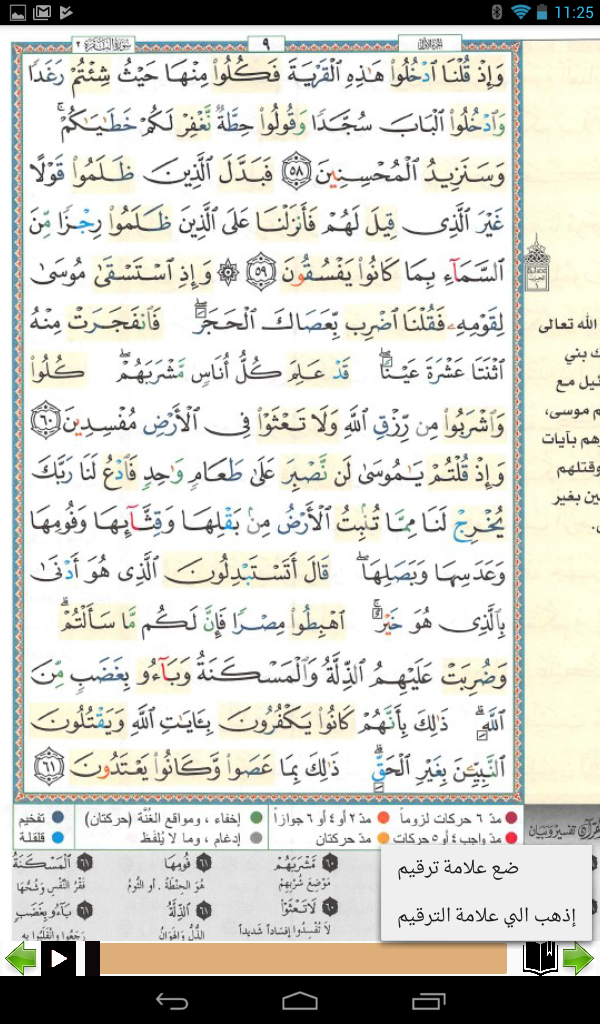 11:25
سورة البقرة ٢
٩
الجزء الأول
وَإِذْ قُلْنَا ادْخُلُوا هَٰذِهِ الْقَرْيَةَ فَكُلُوا مِنْهَا حَيْثُ شِئْتُمْ رَغَدًا
وَادْخُلُوا الْبَابَ سُجَّدًا وَقُولُوا حِطَّةٌ نَّغْفِرْ لَكُمْ خَطَايَاكُمْ ۚ
وَسَنَزِيدُ الْمُحْسِنِينَ ٥٨ فَبَدَّلَ الَّذِينَ ظَلَمُوا قَوْلًا
غَيْرَ الَّذِي قِيلَ لَهُمْ فَأَنزَلْنَا عَلَى الَّذِينَ ظَلَمُوا رِجْزًا مِّنَ
السَّمَاءِ بِمَا كَانُوا يَفْسُقُونَ ٥٩ ۞ وَإِذِ اسْتَسْقَىٰ مُوسَىٰ
لِقَوْمِهِ فَقُلْنَا اضْرِب بِّعَصَاكَ الْحَجَرَ ۖ فَانفَجَرَتْ مِنْهُ
اثْنَتَا عَشْرَةَ عَيْنًا ۖ قَدْ عَلِمَ كُلُّ أُنَاسٍ مَّشْرَبَهُمْ ۖ كُلُوا
وَاشْرَبُوا مِن رِّزْقِ اللَّهِ وَلَا تَعْثَوْا فِي الْأَرْضِ مُفْسِدِينَ ٦٠
وَإِذْ قُلْتُمْ يَا مُوسَىٰ لَن نَّصْبِرَ عَلَىٰ طَعَامٍ وَاحِدٍ فَادْعُ لَنَا رَبَّكَ
يُخْرِجْ لَنَا مِمَّا تُنبِتُ الْأَرْضُ مِن بَقْلِهَا وَقِثَّائِهَا وَفُومِهَا
وَعَدَسِهَا وَبَصَلِهَا ۖ قَالَ أَتَسْتَبْدِلُونَ الَّذِي هُوَ أَدْنَىٰ
بِالَّذِي هُوَ خَيْرٌ ۚ اهْبِطُوا مِصْرًا فَإِنَّ لَكُم مَّا سَأَلْتُمْ ۗ
وَضُرِبَتْ عَلَيْهِمُ الذِّلَّةُ وَالْمَسْكَنَةُ وَبَاءُو بِغَضَبٍ مِّنَ
اللَّهِ ۗ ذَٰلِكَ بِأَنَّهُمْ كَانُوا يَكْفُرُونَ بِآيَاتِ اللَّهِ وَيَقْتُلُونَ
النَّبِيِّينَ بِغَيْرِ الْحَقِّ ۗ ذَٰلِكَ بِمَا عَصَوا وَّكَانُوا يَعْتَدُونَ ٦١
الله تعالى
ك بني
ئيل مع
م موسى،
هم بآيات
وقتلهم
ين بغير
مدّ ٦ حركات لزوماً مدّ ٢ أو ٤ أو ٦ جوازاً إخفاء ، ومواقع الغُنَّة (حركتان) تفخيم
مدّ واجب ٤ أو ٥ حركات مدّ حركتان إدغام ، وما لا يُلفَظ قلقلة
القرآن تفسير وبيان
٦٠ مَّشْرَبَهُمْ ٦١ فُومِهَا ٦١ الْمَسْكَنَةُ
مَوْضِعَ شُرْبِهِمْ هُوَ الحِنْطَةُ . أو الثُّومُ فَقْرُ النَّفْسِ وَشُحُّهَا
٦٠ لَا تَعْثَوْا ٦١ الذِّلَّةُ ٦١ بَاءُو بِغَضَبٍ
لَا تُفْسِدُوا إفْسَاداً شَدِيداً الذُّلُّ وَالهَوَانُ رَجَعُوا وانْقَلَبُوا بِهِ
ضع علامة ترقيم
إذهب الي علامة الترقيم